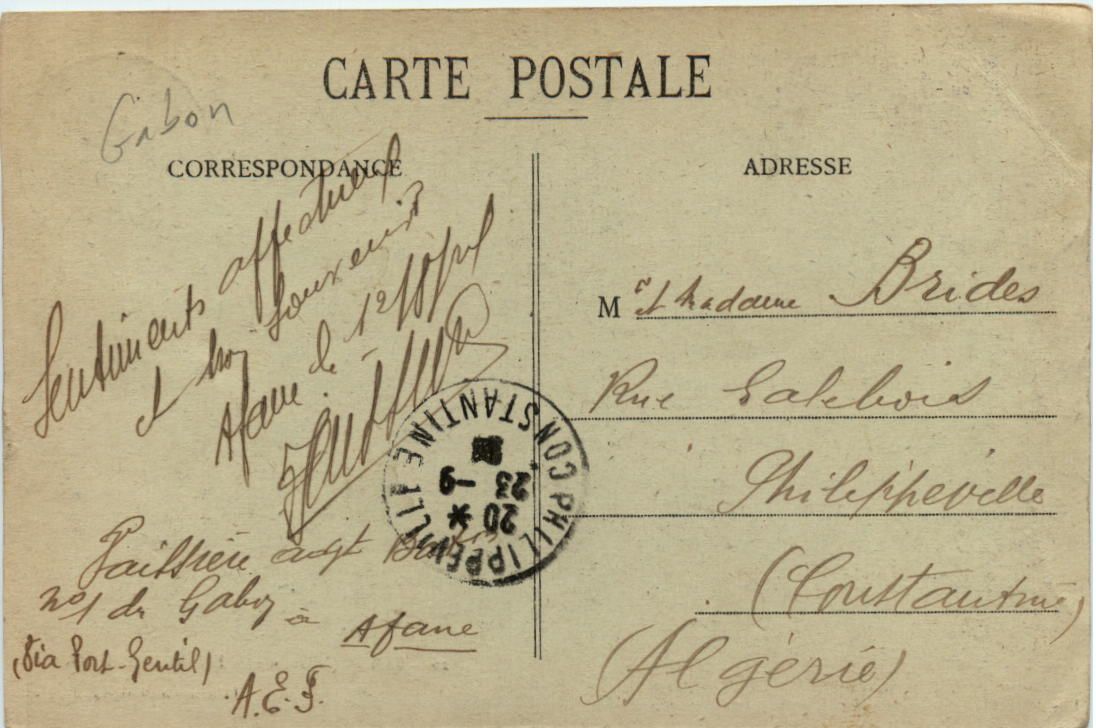 CARTE POSTALE
Gabon
CORRESPONDANCE
Sentiments affectueux
et bon souvenir
Afane le 12
Bat
no 1 du Gabon à Afane
(Via Port-Gentil)
A.E.F.
PHILIPPEVILLE CONSTANTINE
20 *
23 -9
ADRESSE
M r et Madame Brides
Rue Galebois
Philippeville
(Constantine)
(Algérie)